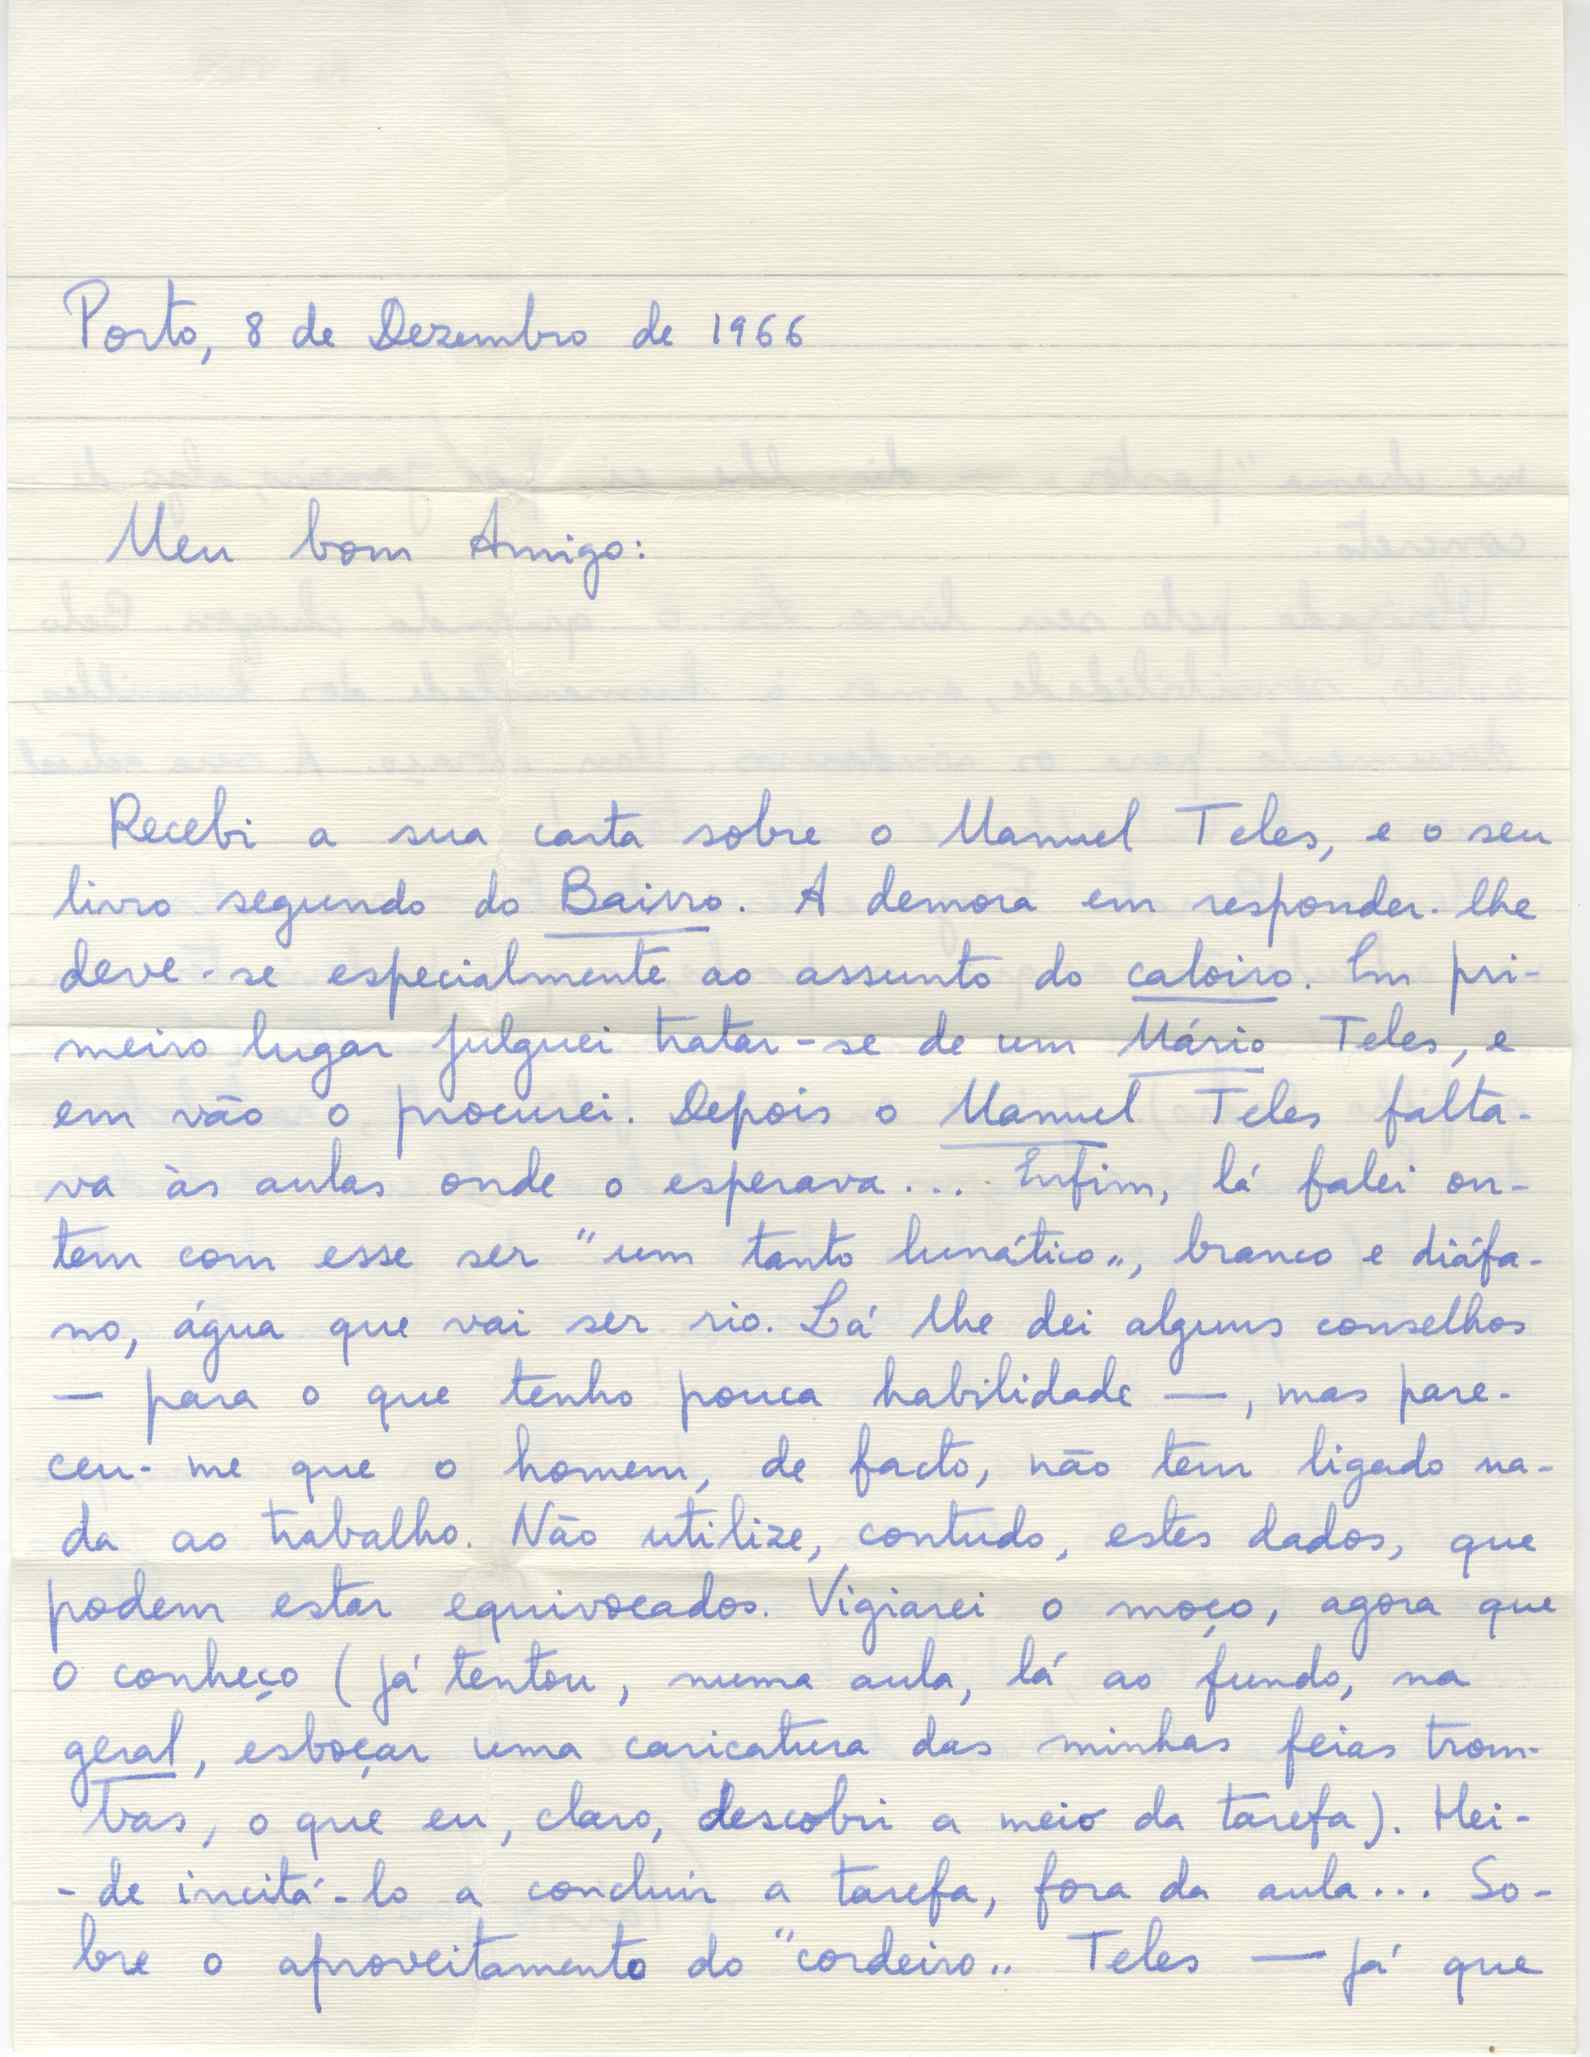 Porto, 8 de Dezembro de 1966
Meu bom Amigo:
Recebi a sua carta sobre o Manuel Teles, e o seu
livro segundo do Bairro. A demora em responder-lhe
deve-se especialmente ao assunto do caloiro. Em pri-
meiro lugar julguei tratar-se de um Mário Teles, e
em vão o procurei. Depois o Manuel Teles falta-
va às aulas onde o esperava... Enfim, lá falei on-
tem com esse ser "um tanto lunático", branco e diáfa-
no, água que vai ser rio. Lá lhe dei alguns conselhos
— para o que tenho pouca habilidade —, mas pare-
ceu-me que o homem, de facto, não tem ligado na-
da ao trabalho. Não utilize, contudo, estes dados, que
podem estar equivocados. Vigiarei o moço, agora que
o conheço (já tentou, numa aula, lá ao fundo, na
geral, esboçar uma caricatura das minhas feias trom-
bas, o que eu, claro, descobri a meio da tarefa). Hei-
-de incitá-lo a concluir a tarefa, fora da aula... So-
bre o aproveitamento do "cordeiro" Teles — já que